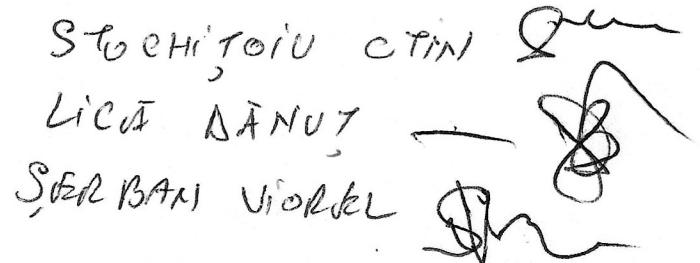 STOCHIȚOIU CTIN
LICĂ DĂNUȚ —
ȘERBAN VIOREL